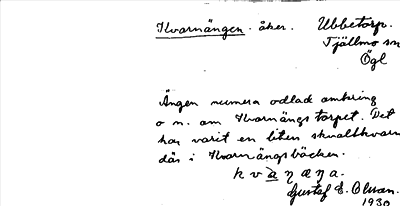 Kvarnängen. åker. Ubbetorp.
Tjällmo sn
Ögl
Ängen numera odlad omkring
o n. om Kvarnängstorpet. Det
har varit en liten skvaltkvarn
där i Kvarnängsbäcken.
kvaṇæŋa.
Gustaf E. Olsson.
1930